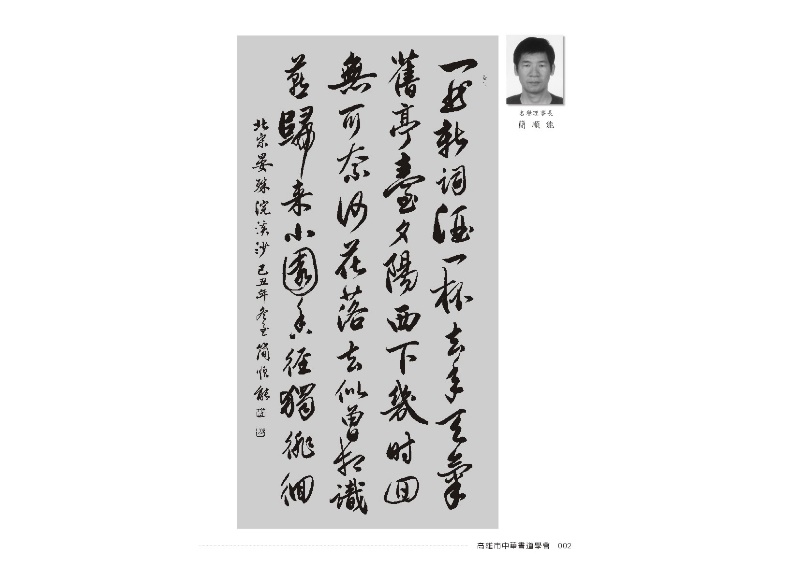 一曲新詞酒一杯去年天氣
舊亭臺夕陽西下幾时回
無可奈何花落去似曾相識
燕歸来小園香徑獨徘徊
北宋晏殊浣溪沙己丑年冬至簡順能
名譽理事長
簡順能
高雄市中華書道學會 002